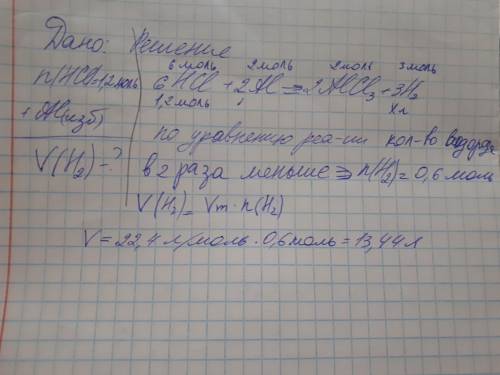 Дано: Решение
6 моль 2 моль 2 моль 3 моль
n(HCl)=1,2 моль 6HCl + 2Al = 2AlCl₃ + 3H₂
1,2 моль Xл
+ Al(изб)
по уравнению реа-ии кол-во водорода
V(H₂)-? в 2 раза меньше ⇒ n(H₂) = 0,6 моль
V(H₂) = Vm · n(H₂)
V = 22,4 л/моль · 0,6 моль = 13,44 л